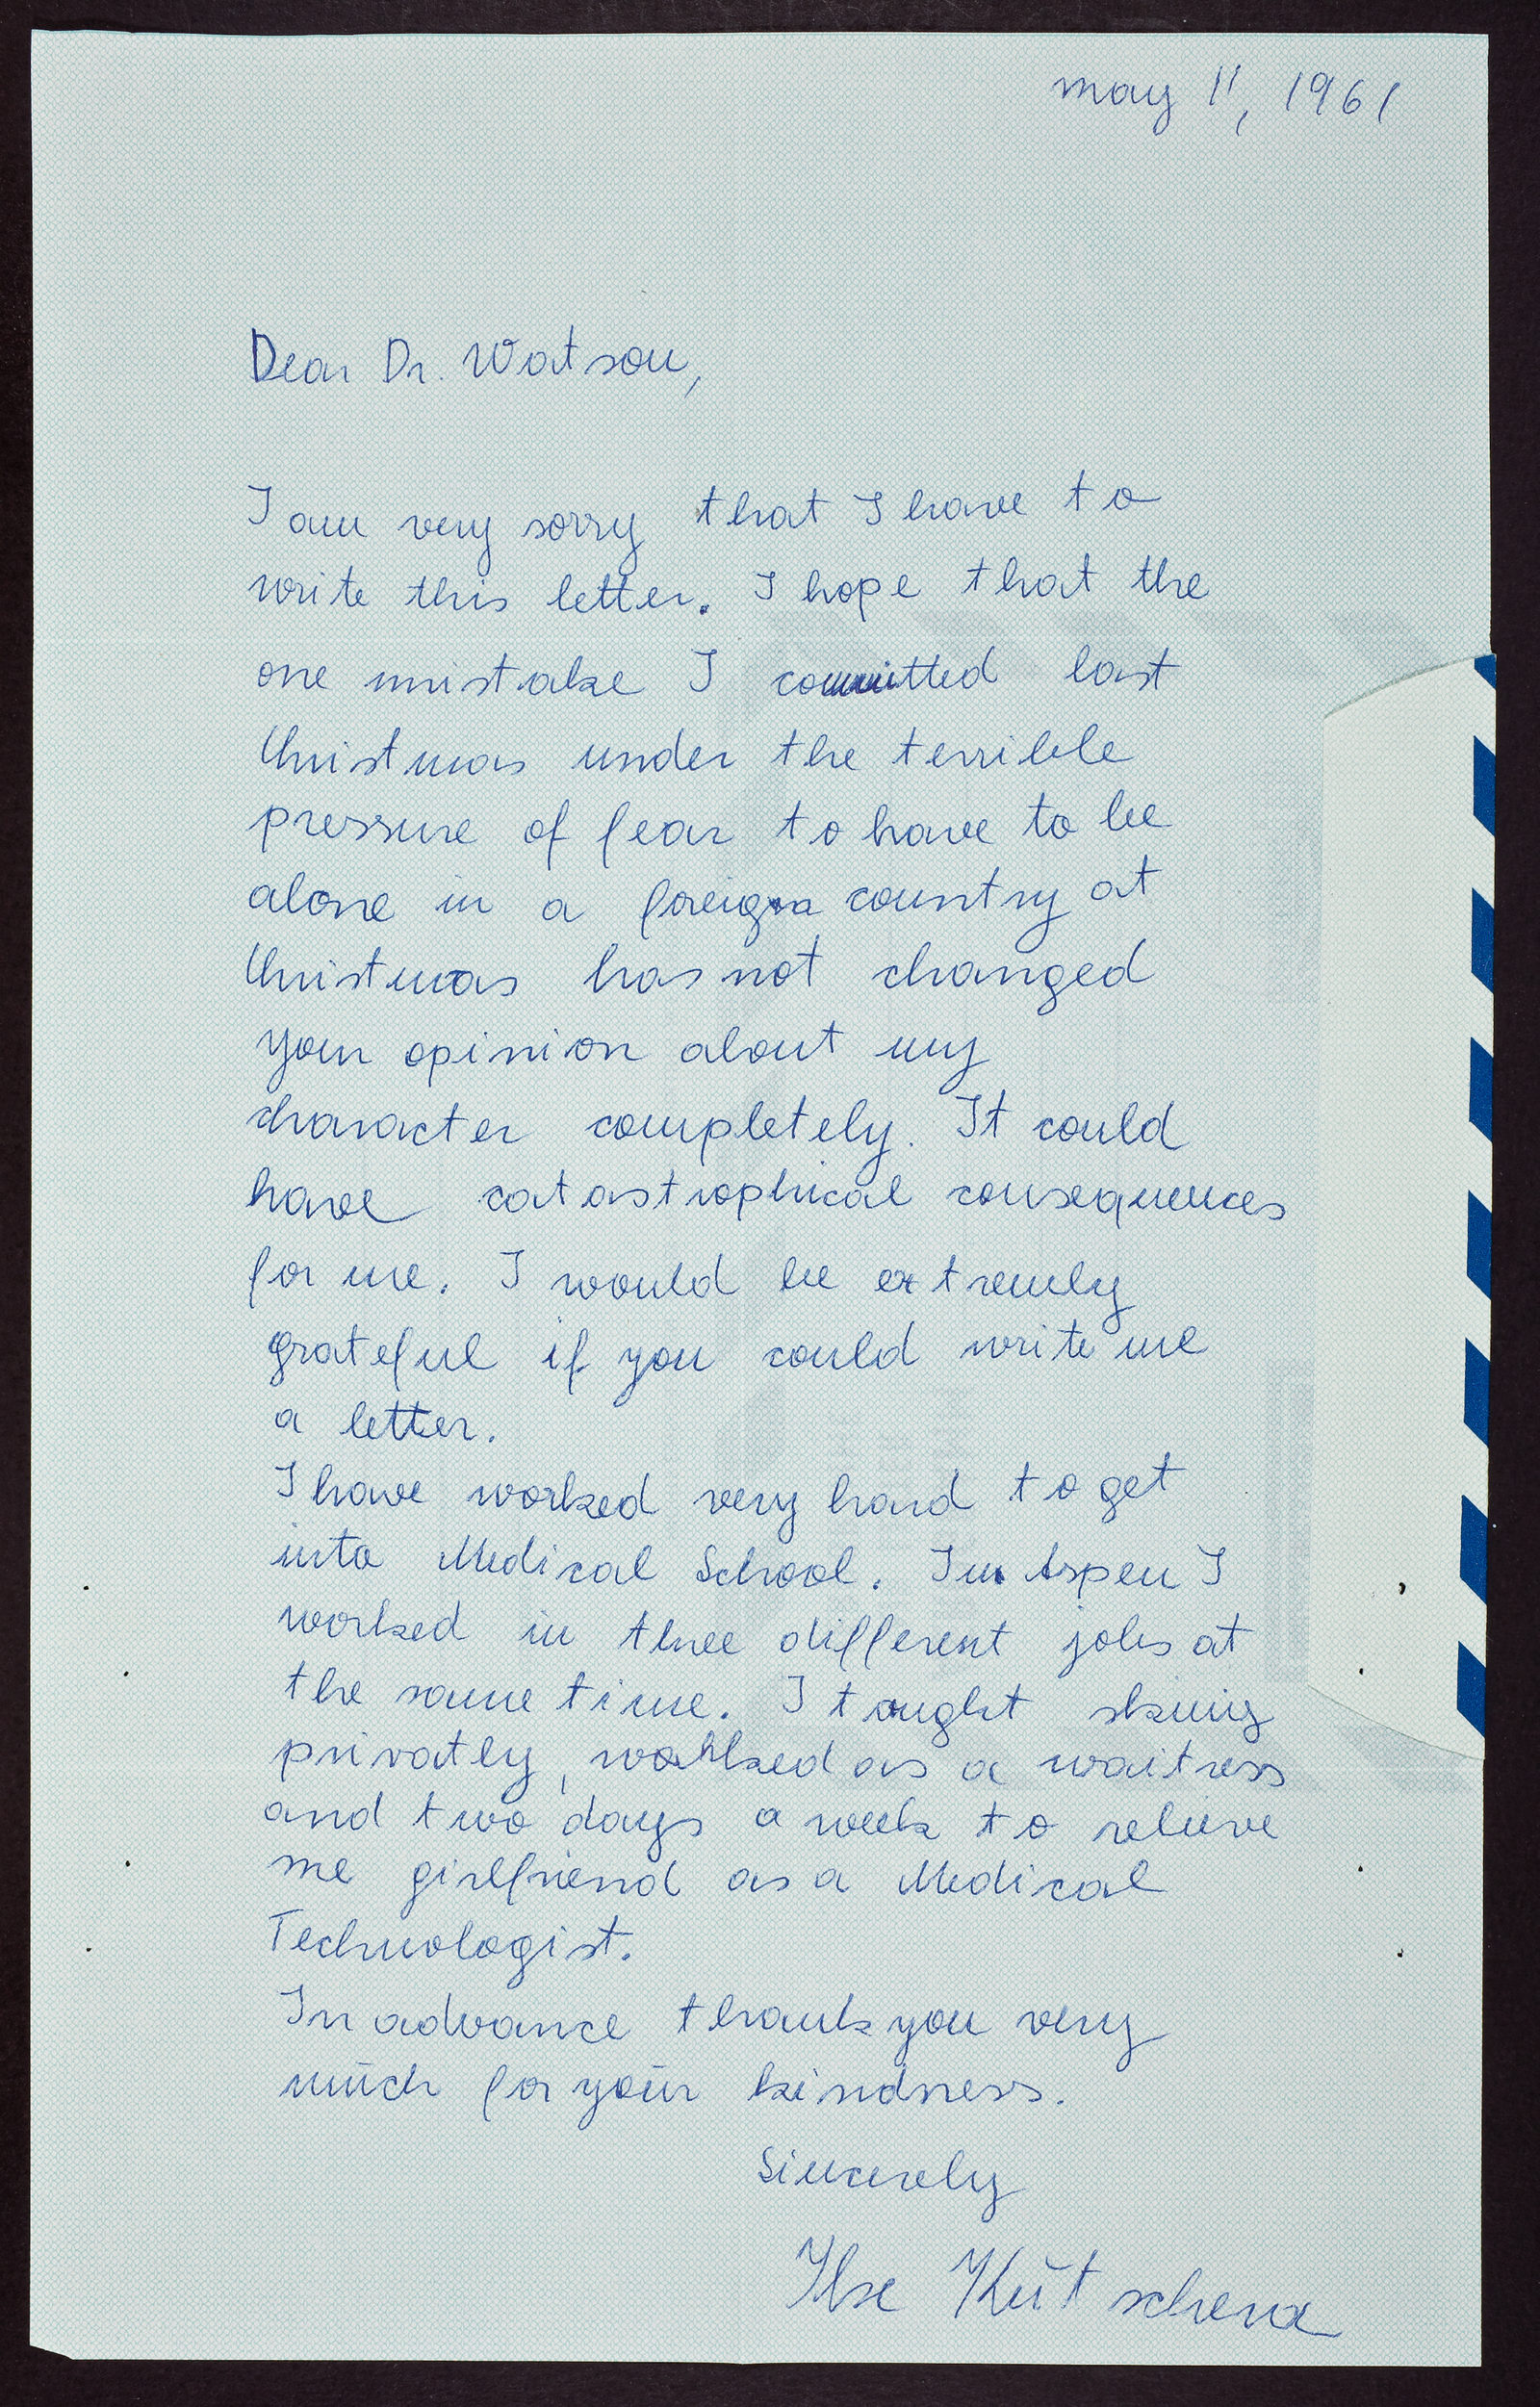 may 11, 1961
Dear Dr. Watson,
I am very sorry that I have to
write this letter. I hope that the
one mistake I committed last
Christmas under the terrible
pressure of fear to have to be
alone in a foreign country at
Christmas has not changed
your opinion about my
character completely. It could
have catastrophical consequences
for me. I would be extremly
grateful if you could write me
a letter.
I have worked very hard to get
into Medical School. In Aspen I
worked in three different jobs at
the same time. I tought skiing
privatly, worked as a waitress
and two days a week to relieve
me girlfriend as a Medical
Technologist.
In advance thank you very
much for your kindness.
Sincerely
Ilse Kutschera